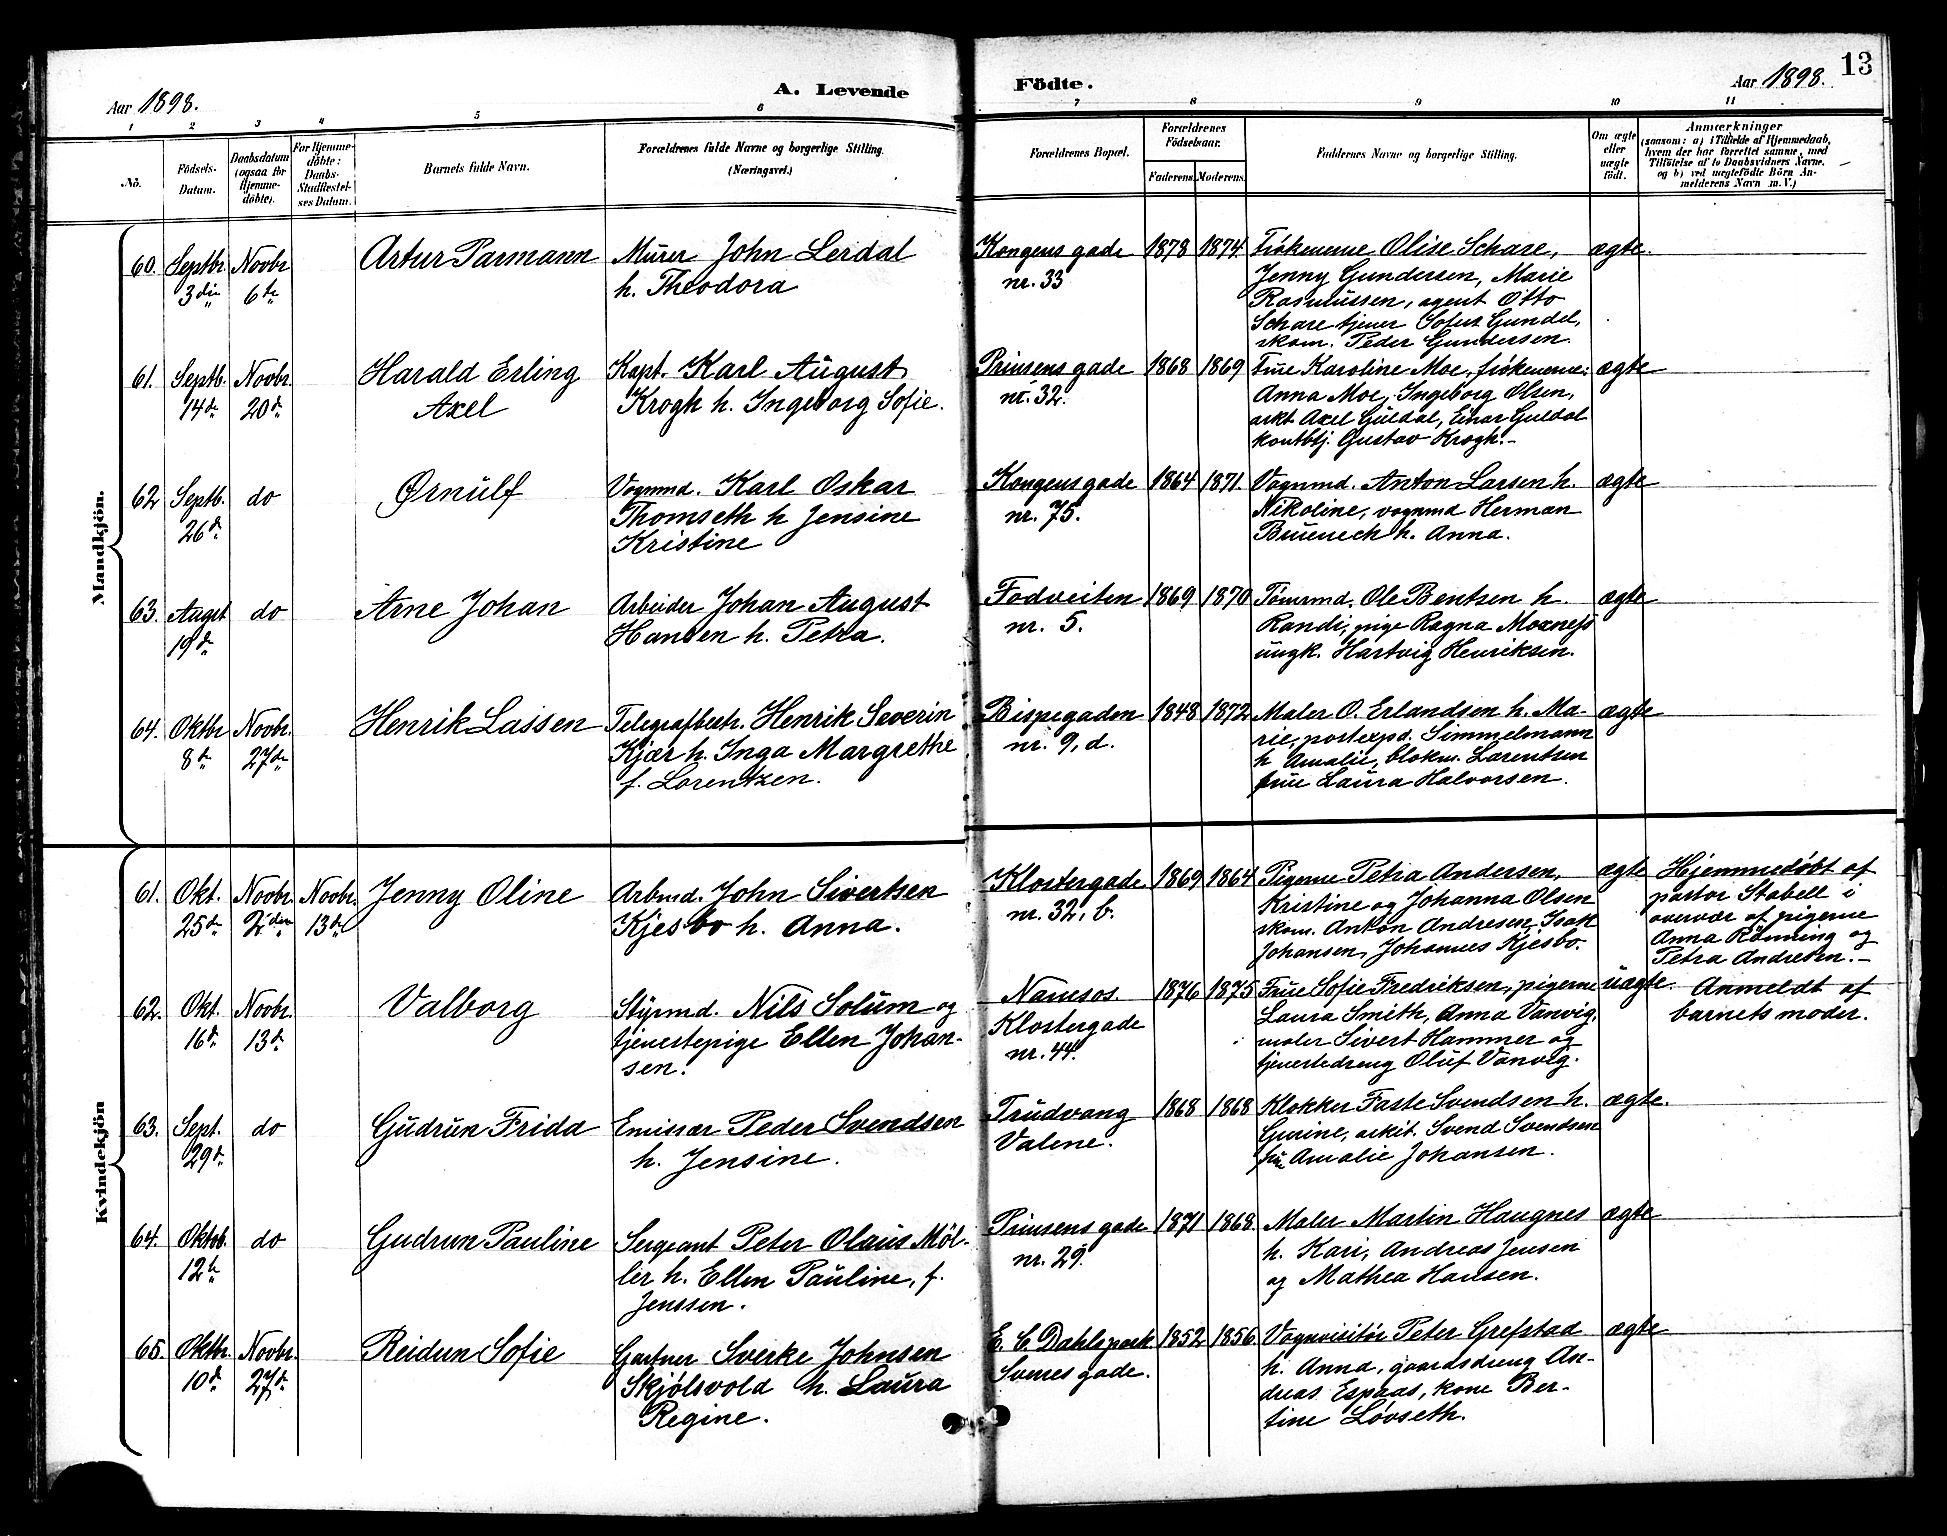 13
Aar 1898.
A. Levende
Födte.
Aar 1898.
1 2 3 4 5 6 7 8 9 10 11
No.
Födsels-
Datum.
Daabsdatum
(ogsaa for
Hjemme-
döbte).
For Hjemme-
döbte:
Daabs-
Stadfæstel-
ses Datum.
Barnets fulde Navn.
Forældrenes fulde Navne og borgerlige Stilling.
(Næringsvei.)
Forældrenes Bopæl.
Forældrenes
Födselsaar.
Faderens. Moderens.
Faddernes Navne og borgerlige Stilling.
Om ægte
eller
uægte
födt.
Anmærkninger
(saasom: a) i Tilfælde af Hjemmedaab,
hvem der har forrettet samme, med
Tilföielse af to Daabsvidners Navne,
og b) ved uægtefödte Börn An-
melderens Navn m. V.)
Mandkjön.
60. Septbr. 3die
Novbr 6te
Artur Parmann
Murer John Lerdal
h. Theodora
Kongens gade
nr. 33
1878 1874
Frøknerne Olise Schare,
Jenny Gundersen, Marie
Rasmussen, agent Otto
Schare tjener Sofus Gundel,
skom. Peder Gundersen.
ægte.
61. Septb. 14de
Novbr 20de
Harald Erling
Axel
Kapt. Karl August
Krogh h. Ingeborg Sofie.
Prinsens gade
nr. 32.
1868 1869
Frue Karoline Moe, frøknerne:
Anna Moe, Ingeborg Olsen,
arkt Axel Guldal, Einar Guldal
kontbtj. Gustav Krogh.-
ægte
62 Septb. 26de
do
Ørnulf
Vognmd. Karl Oskar
Thomseth h Jensine
Kristine
Kongens gade
nr. 75.
1864 1871.
Vognmd. Anton Larsen h.
Nikoline, vognmd Herman
Bruenech h. Anna.
ægte
63. Augst 19de
do
Arne Johan
Arbeider Johan August
Hansen h. Petra.
Fodveiten
nr. 5.
1869 1870
Tømrmd. Ole Bentsen h.
Randi, pige Ragna Moxness
ungk. Hartvig Henriksen.
ægte
64. Oktbr 8de
Novbr. 27de
Henrik Lassen
Telegrafbest. Henrik Severin
Kjær h. Inga Margrethe
f. Lorentzen.
Bispegaden
nr. 9, d.
1848 1872
Maler O. Erlandsen h. Ma-
rie, postexpd. Simmelmann
h Amalie, blokm. Larentsen
frue Laura Halvorsen.
ægte
Kvindekjön
61. Okt. 25de
Novbr. 2den
Novbr. 13de
Jenny Oline
Arbmd. John Sivertsen
Kjesbo h. Anna.
Klostergade
nr. 32, b.
1869 1864
Pigerne Petra Andersen,
Kristine og Johanna Olsen
skom. Anton Andresen, Isak
Johansen, Johannes Kjesbo.
ægte
Hjemmedøbt af
pastor Stabell i
overvær af pigerne
Anna Rønning og
Petra Andresen.-
62. Okt. 16de
Novbr. 13de
Valborg
Styrmd. Nils Solum og
tjenestepige Ellen Johan-
sen.
Namsos.
Klostergade
nr. 44.
1876 1875
Frue Sofie Fredriksen, pigerne
Laura Smith, Anna Vanvig,
maler Sivert Hammer og
tjenestedreng Oluf Vanvig.
uægte.
Anmeldt af
barnets moder.
63. Sept. 29de
do
Gudrun Frida
Emissær Peder Svendsen
h. Jensine.
Trudvang
Valene.
1868 1868
Klokker Faste Svendsen h.
Gurine, arkit. Svend Svendsen
frue Amalie Johansen.
ægte.
64. Oktob. 12te
do
Gudrun Pauline
Sergeant Peter Olaus Møl-
ler h. Ellen Pauline, f.
Jenssen.
Prinsens gade
nr. 29.
1871 1868.
Maler Martin Haugnes
h. Kari, Andreas Jensen
og Mathea Hansen.
ægte
65. Oktbr. 10de
Novbr. 27de
Reidun Sofie
Gartner Sverke Johnsen
Skjølsvold h. Laura
Regine.
E. C. Dahls park
Sverres gade.
1852 1856.
Vognvisitør Peter Grefstad
h. Anna, gaardsdreng An-
dreas Espaas, kone Ber-
tine Løvseth.
ægte